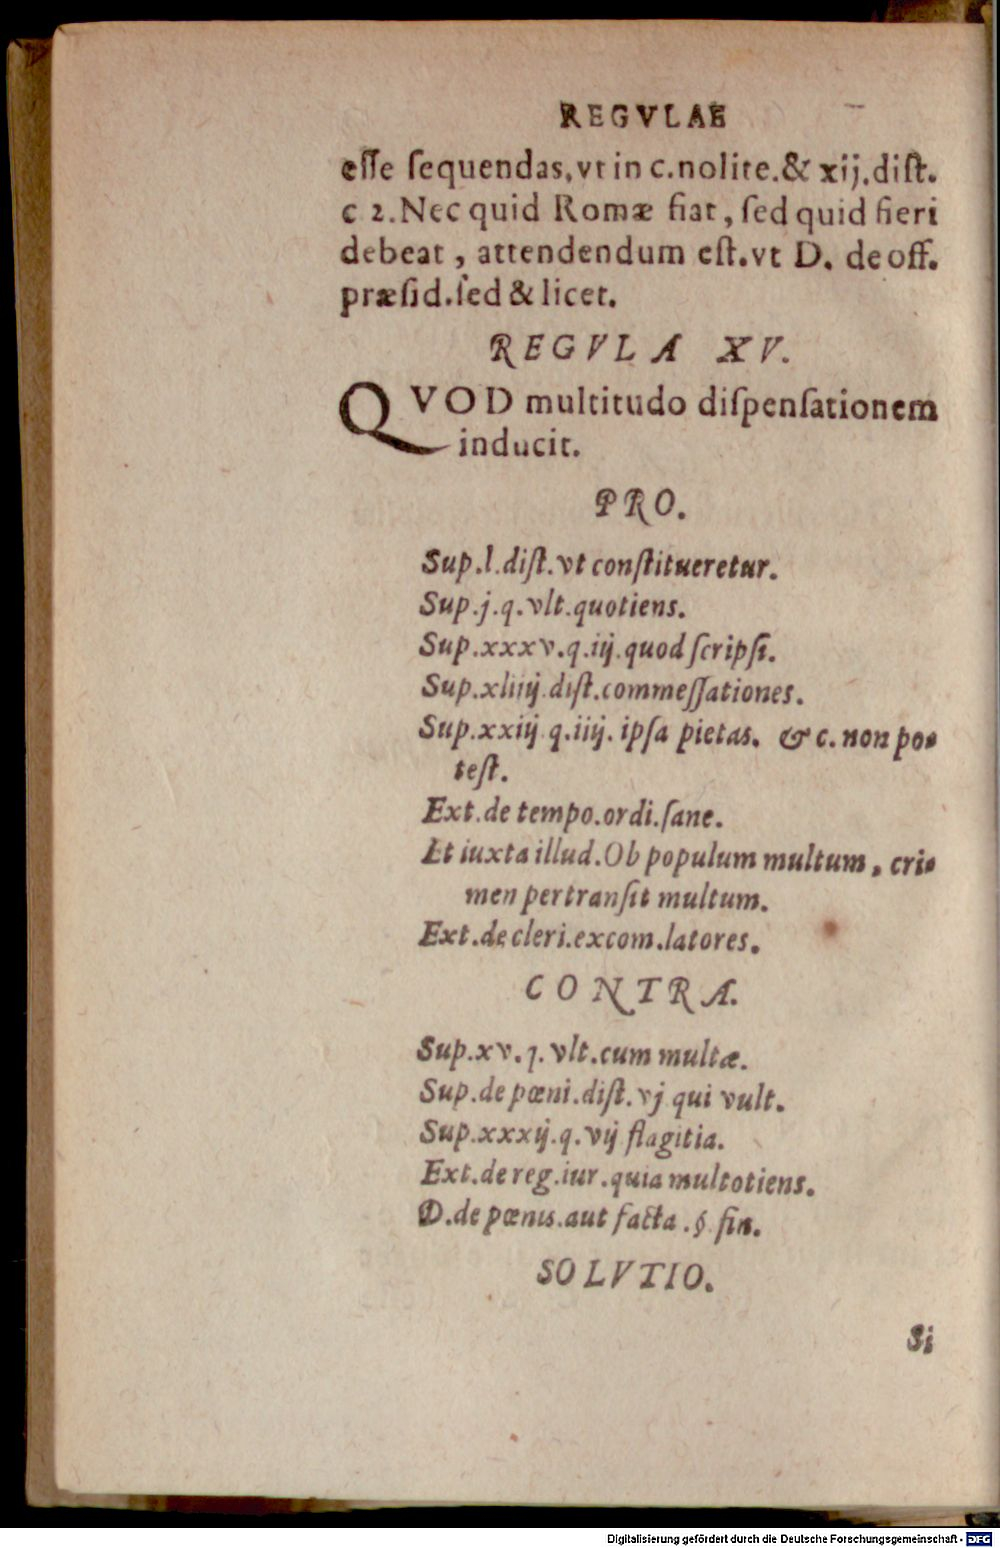 REGVLAE
esse sequendas, vt in c. nolite. & xij. dist.
c 2. Nec quid Romæ fiat, sed quid fieri
debeat, attendendum est. vt D. de off.
præsid. sed & licet.
REGVLA XV.
QVOD multitudo dispensationem
inducit.
PRO.
Sup. l. dist. vt constitueretur.
Sup. j. q. vlt. quotiens.
Sup. xxxv. q. iij. quod scripsi.
Sup. xliiij. dist. commessationes.
Sup. xxiij q. iiij. ipsa pietas. & c. non po-
test.
Ext. de tempo. ordi. sane.
Et iuxta illud. Ob populum multum, cri-
men pertransit multum.
Ext. de cleri. excom. latores.
CONTRA.
Sup. xv. q. vlt. cum multæ.
Sup. de pœni. dist. vj qui vult.
Sup. xxxij. q. vij flagitia.
Ext. de reg. iur. quia multotiens.
D. de pœnis. aut facta. §. fin.
SOLVTIO.
Si
Digitalisierung gefördert durch die Deutsche Forschungsgemeinschaft - DFG